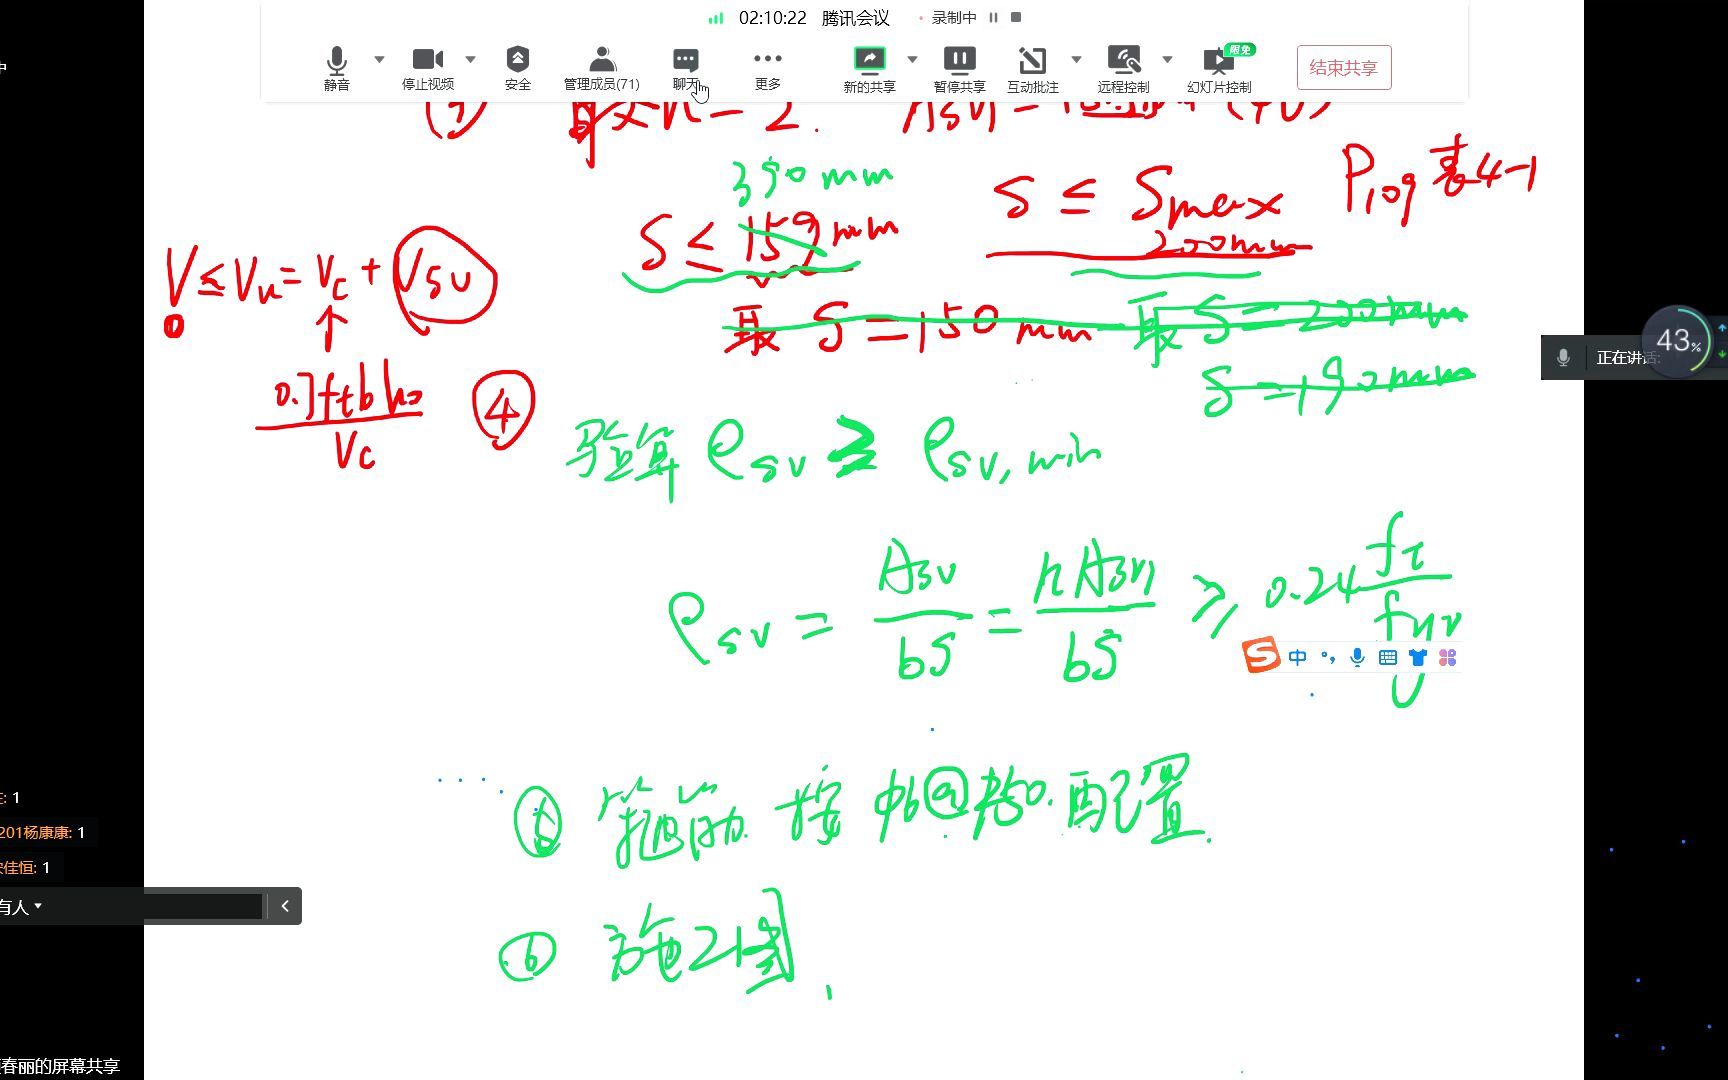 02:10:22 腾讯会议 录制中
静音 停止视频 安全 管理成员(71) 聊天 更多 新的共享 暂停共享 互动批注 远程控制 限免 幻灯片控制 结束共享
中
取 n = 2.
350 mm
S ≤ 159 mm
S ≤ Smax
200mm
P109 表4-1
V ≤ Vu = Vc + Vsv
0.7ftbh0
Vc
取 S = 150 mm
取 S = 200mm
S = 190mm
43%
正在讲话:
④ 验算 ρsv ≥ ρsv,min
ρsv = Asv/bS = nAsv1/bS ≥ 0.24 ft/fyv
中
⑤ 箍筋 按 φ6@150 配置.
⑥ 施工图
: 1
201杨康康: 1
佳恒: 1
有人
春丽的屏幕共享